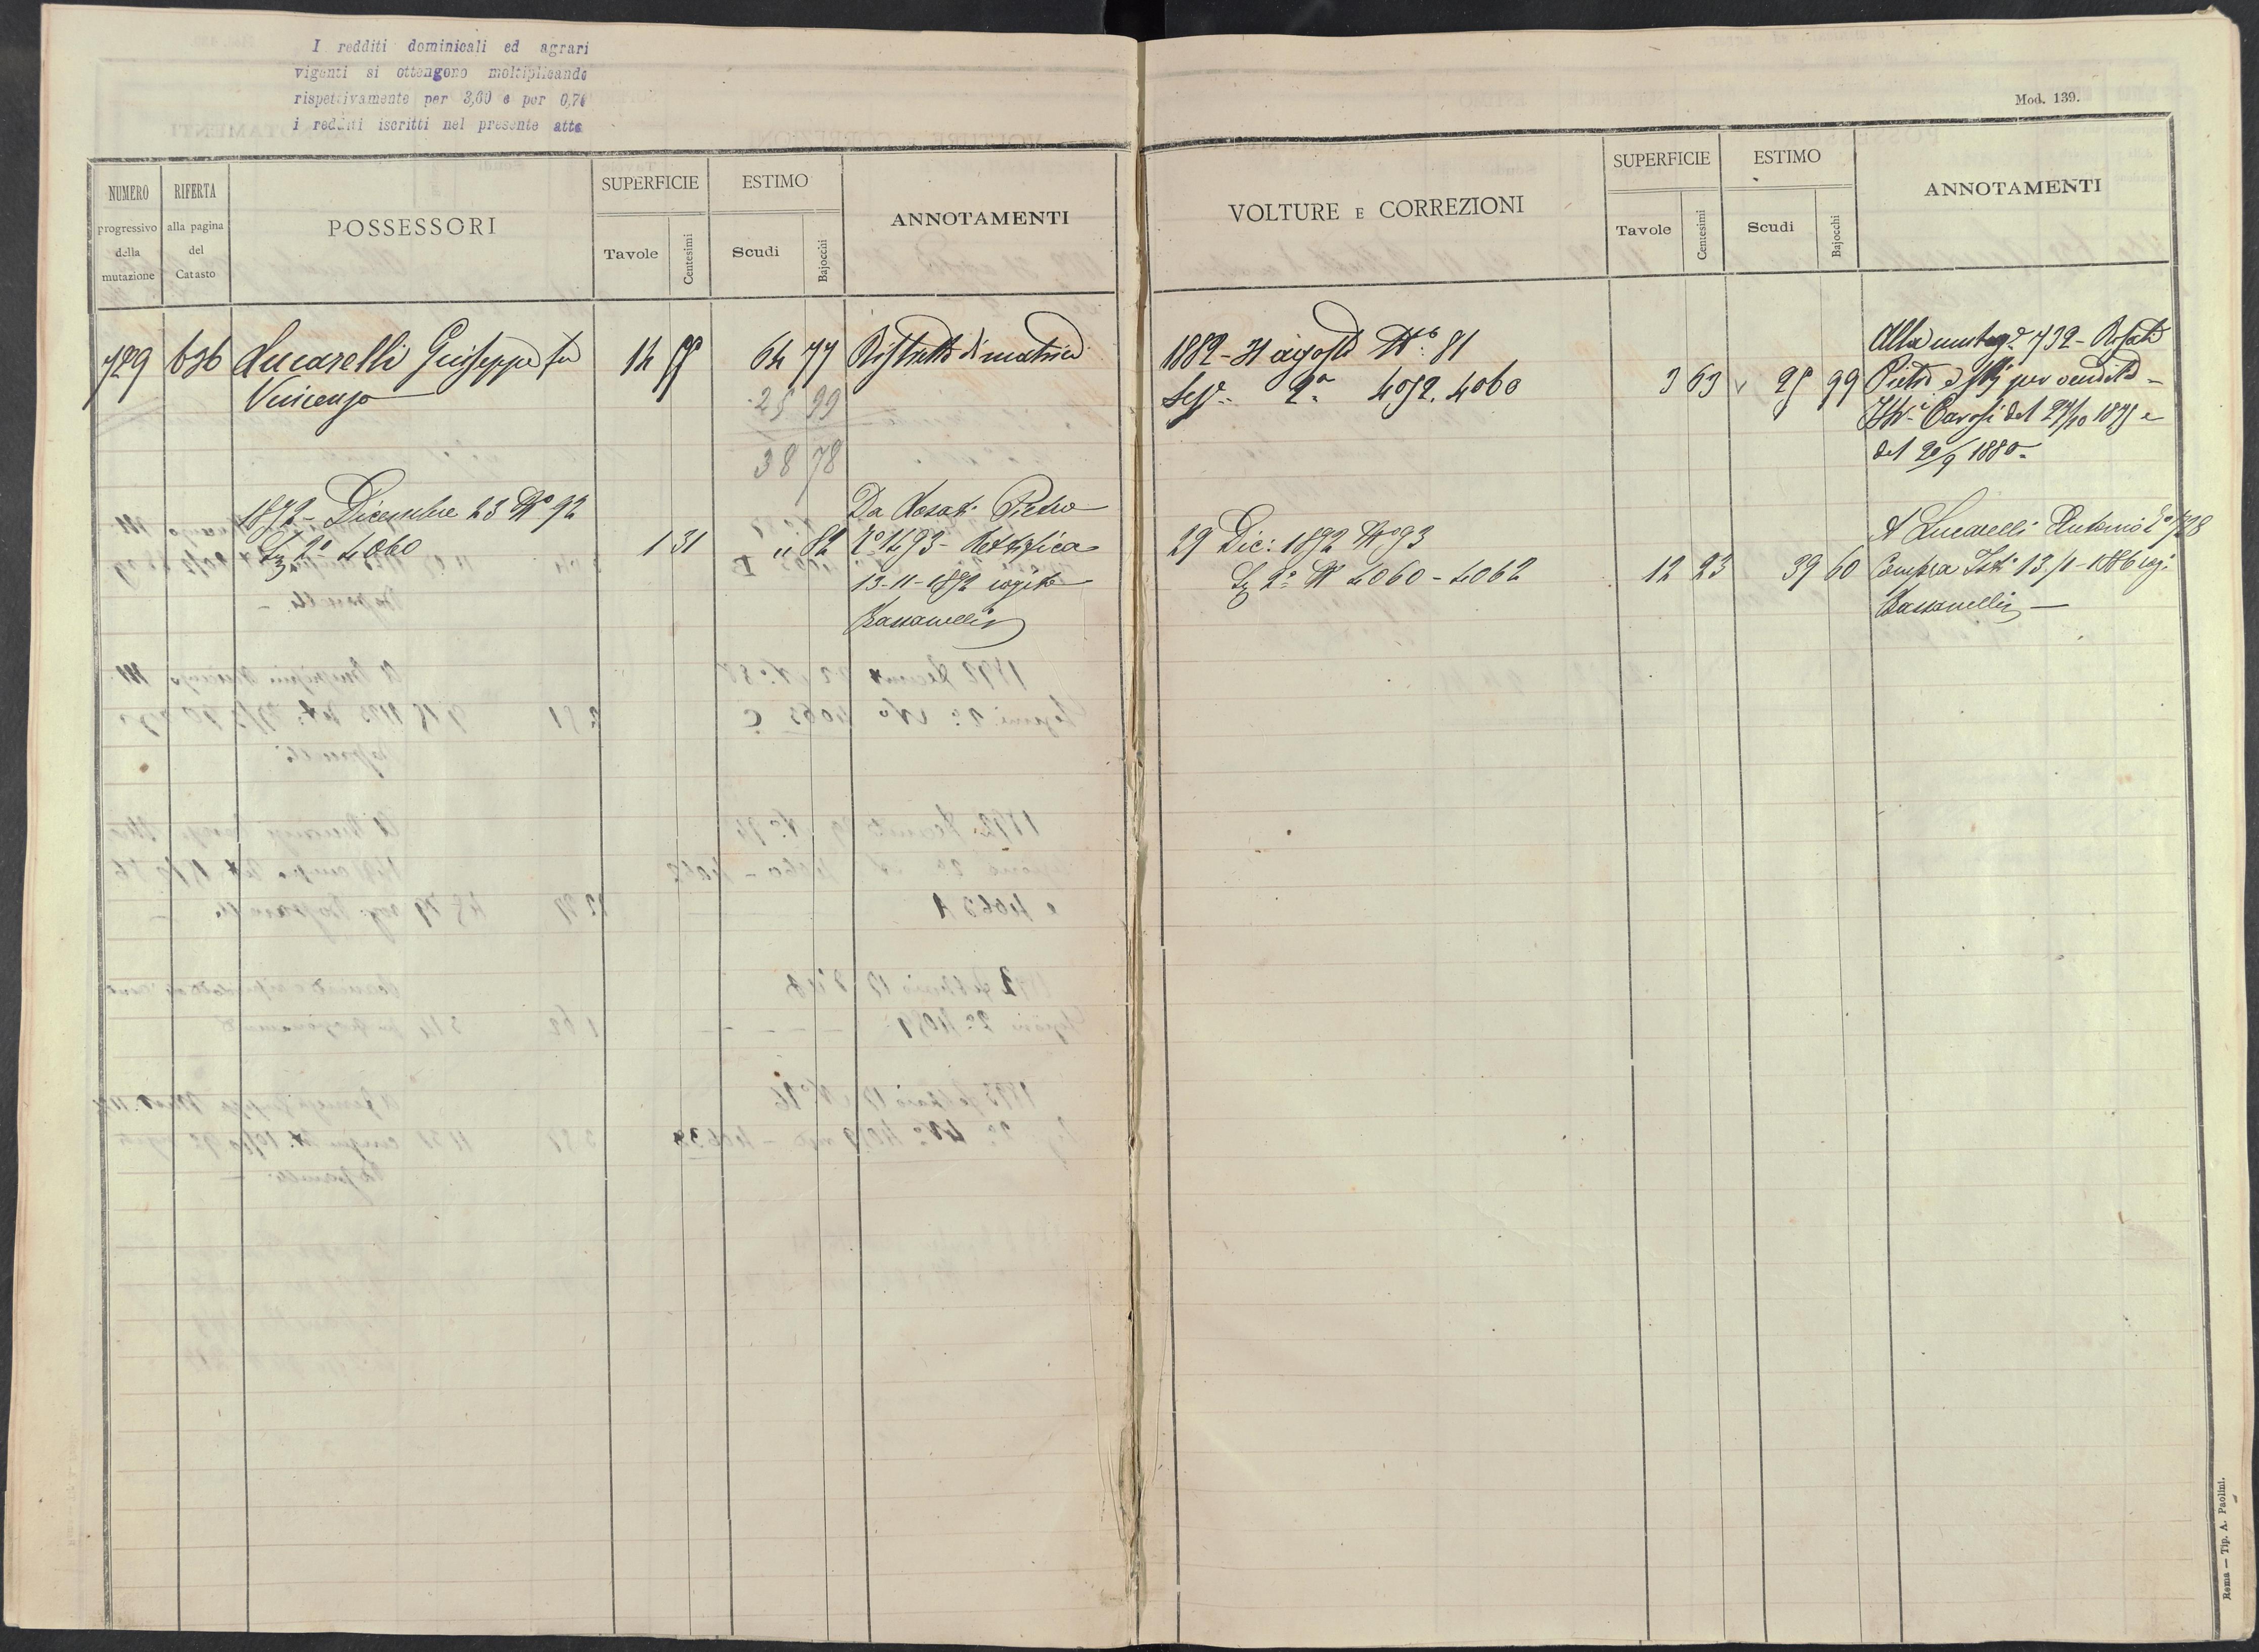 I redditi dominicali ed agrari
vigenti si ottengono moltiplicando
rispettivamente per 3,60 e per 0,76
i redditi iscritti nel presente atto
Mod. 139.
NUMERO
progressivo
della
mutazione
RIFERTA
alla pagina
del
Catasto
POSSESSORI
SUPERFICIE
Tavole
Centesimi
ESTIMO
Scudi
Bajocchi
ANNOTAMENTI
VOLTURE E CORREZIONI
SUPERFICIE
Tavole
Centesimi
ESTIMO
Scudi
Bajocchi
ANNOTAMENTI
729 636 Lucarelli Giuseppe fu 64 77 Ristretto di matrice
Vincenzo
25 99
38 78
1872 - Dicembre 23 N° 92
Sez 2a 4060 1 31 " 82
Da Rosati Pietro
N° 1493 - Rettifica
13-11-1892 rogito
Bassanelli
1882 - 31 agosto N°. 81
Sez. 2a 4052. 4060 3 63 25 99
Alla mutaz. 732 - Rosati
Pietro per vendita -
Carosi del 27/10 1875 e
del 20/9 1880 -
29 Dic: 1892 N° 93
Sez 2a N 4060 - 4062 12 23 39 60
A Lucarelli Antonio 728
Compra Isti 13/1 - 1886 rog:
Bassanelli
Roma — Tip. A. Paolini.